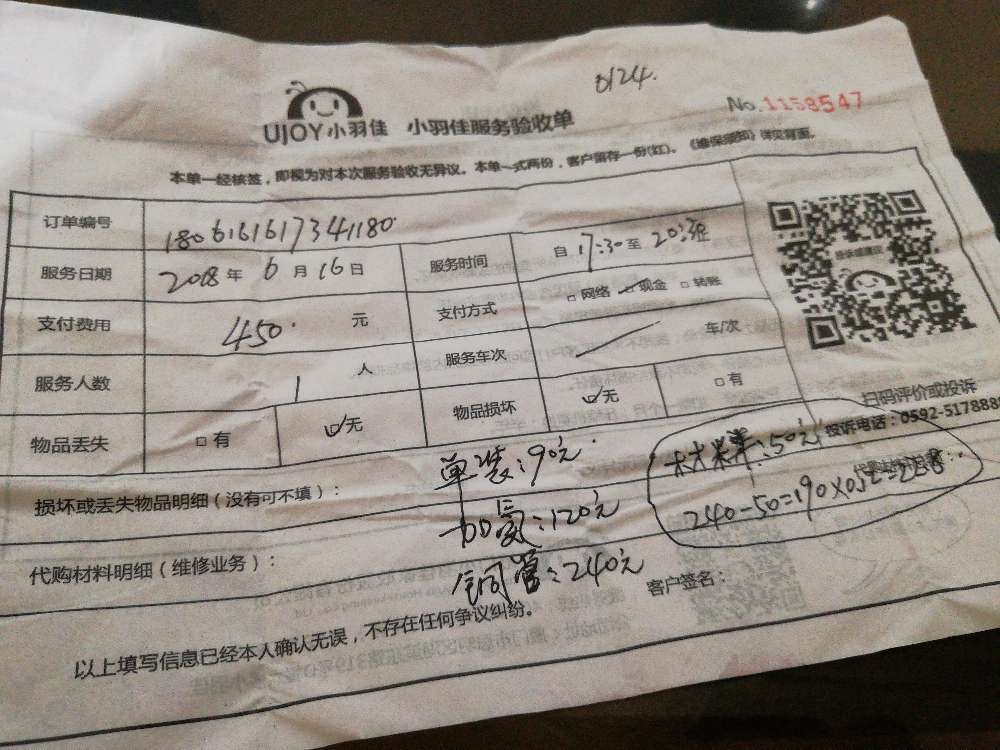 0124.
UJOY小羽佳 小羽佳服务验收单
No.1158547
本单一经核签，即视为对本次服务验收无异议。本单一式两份，客户留存一份(红)。《维保须知》详见背面。
订单编号 1806161617341180
服务日期 2018年6月16日 服务时间 自17:30至
支付费用 450元 支付方式 □网络 ☑现金 □转账
服务人数 1人 服务车次 车/次
物品丢失 □有 ☑无 物品损坏 ☑无 □有
扫码评价或投诉
投诉电话：0592-5178888
损坏或丢失物品明细（没有可不填）：
单装：90元
材料：50元
加氟：120元
240-50=190×0.5=
代购材料明细（维修业务）：
铜管：240元
客户签名：
以上填写信息已经本人确认无误，不存在任何争议纠纷。